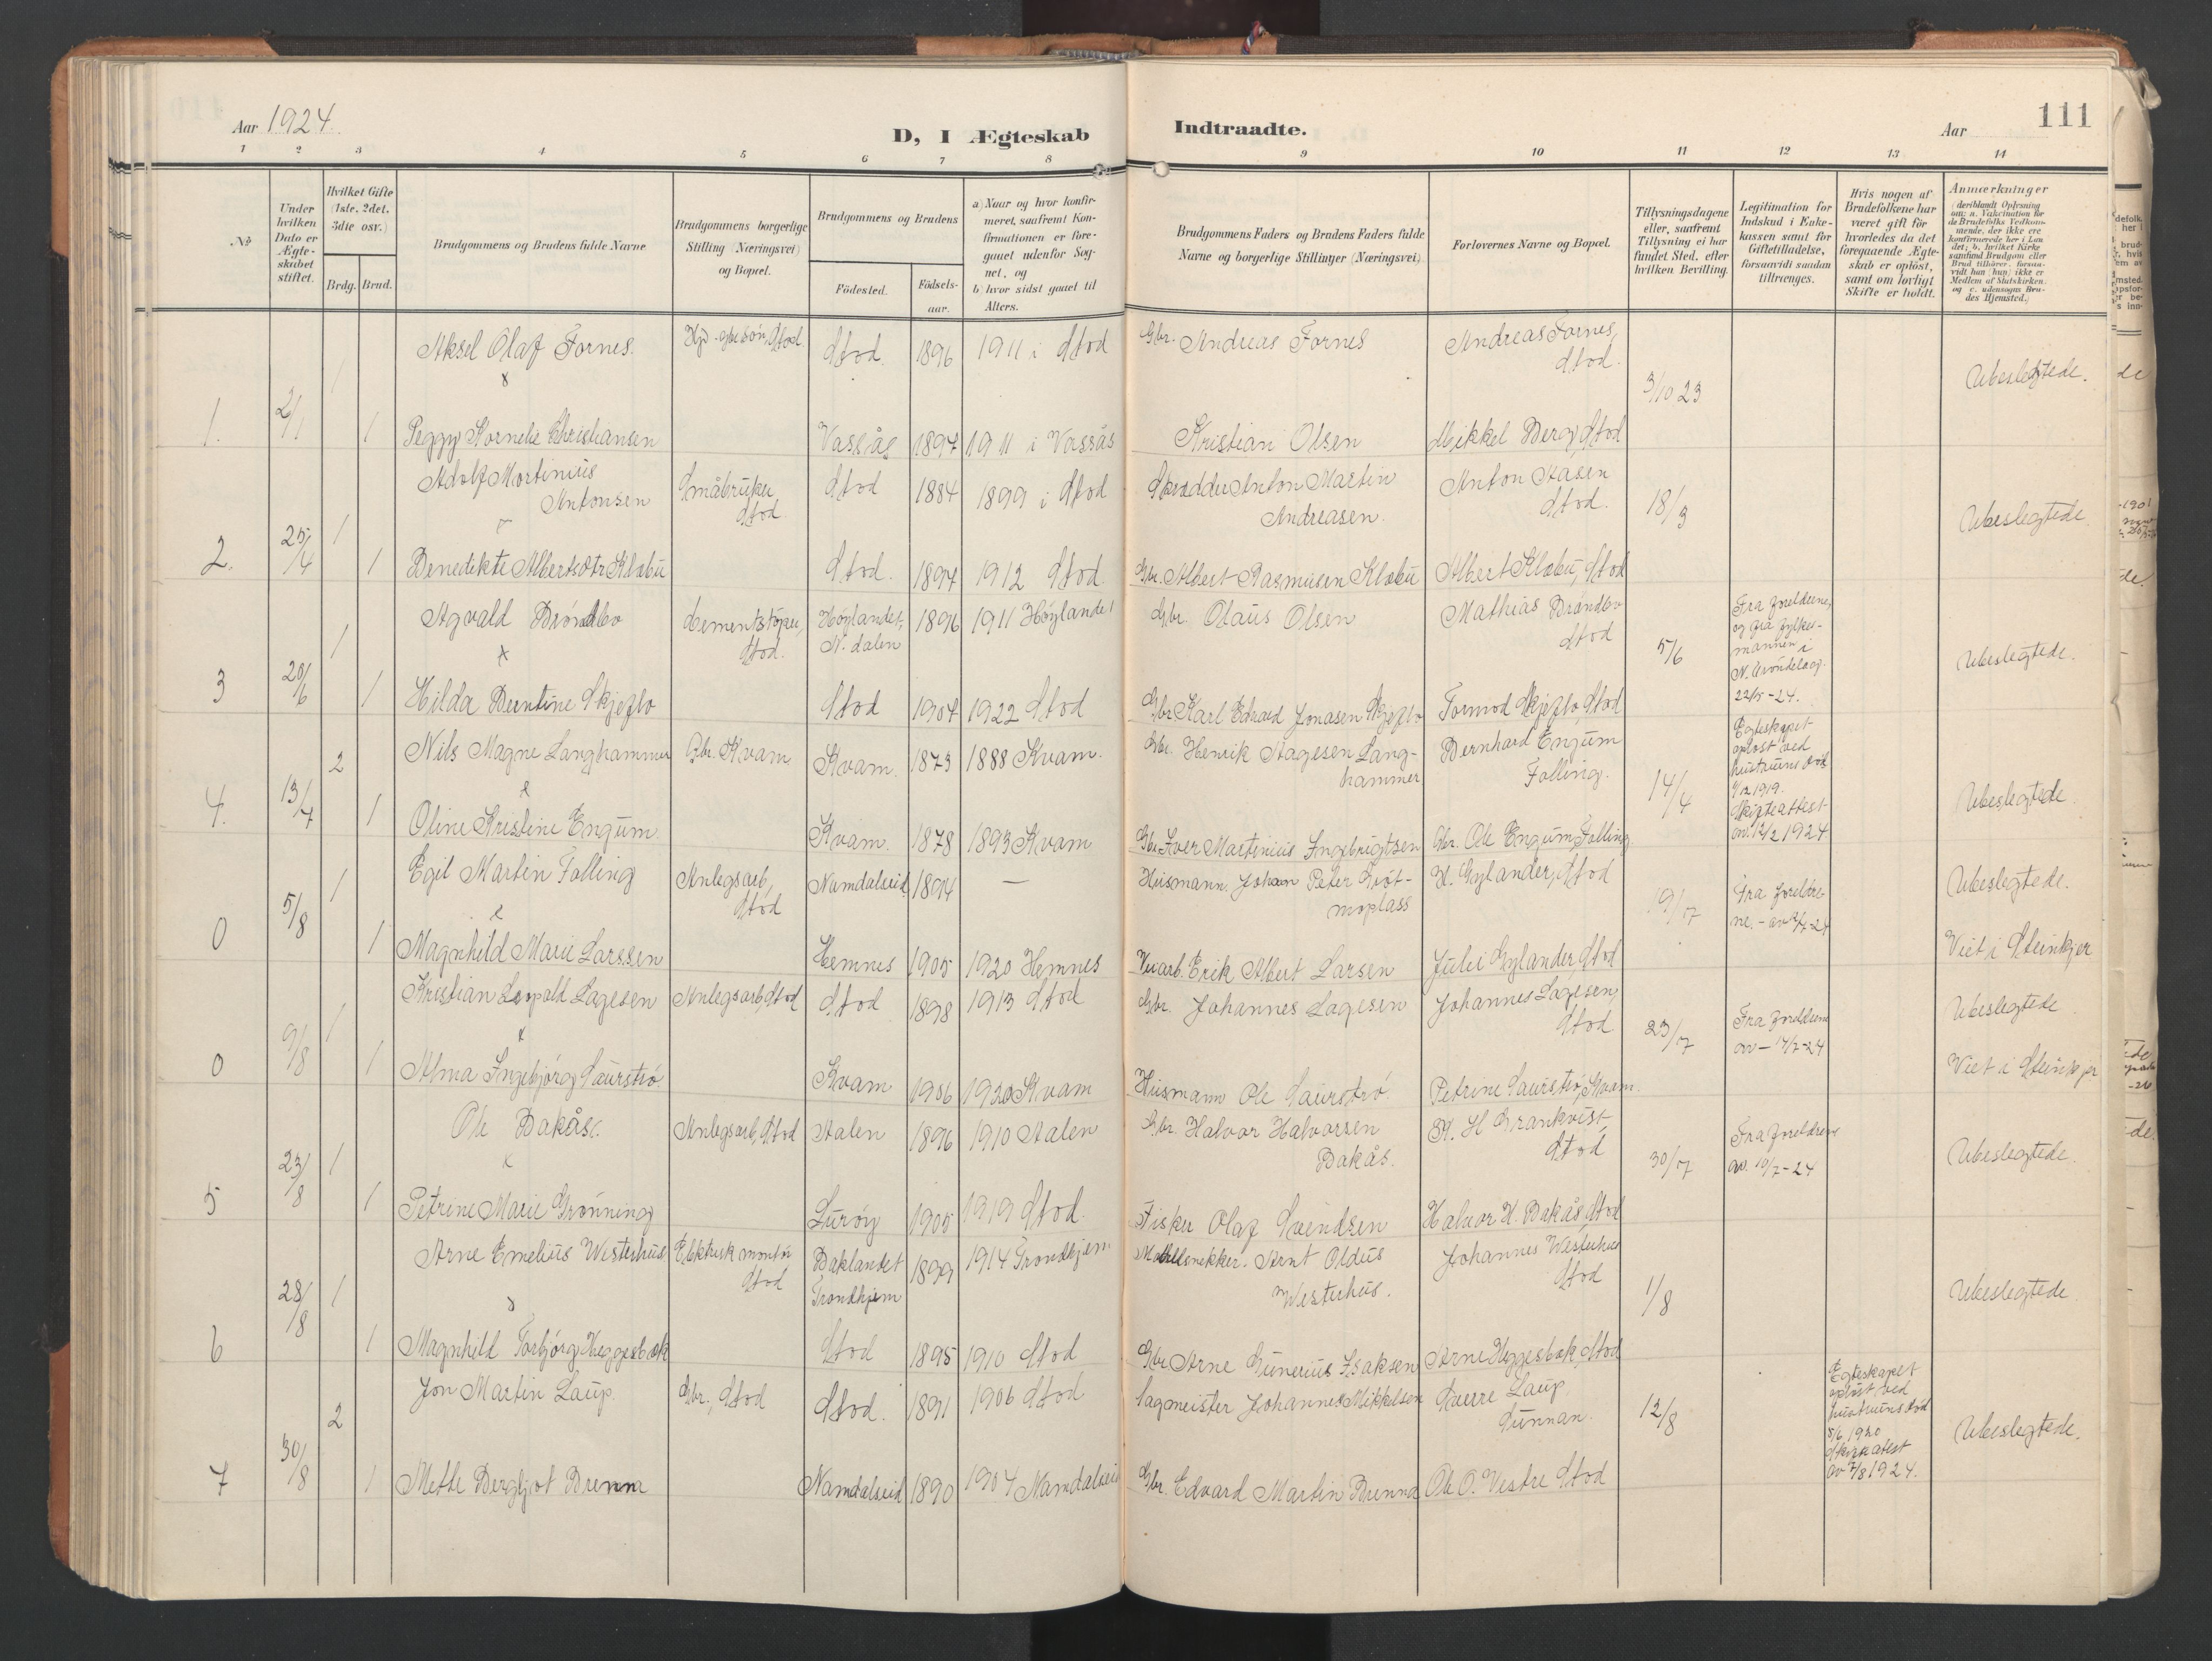 Aar 1924.
D, I Ægteskab
Indtraadte.
Aar
111
1 2 3 4 5 6 7 8 9 10 11 12 13 14
No
Under
hvilken
Dato er
Ægte-
skabet
stiftet.
Hvilket Gifte
(1ste, 2det,
3dte osv.)
Brdg. Brud.
Brudgommens og Brudens fulde Navne
Brudgommens borgerlige
Stilling (Næringsvei)
og Bopæl.
Brudgommens og Brudens
Födested.
Födsels-
aar.
a) Naar og hvor konfir-
meret, saafremt Kon-
firmationen er fore-
gaaet udenfor Sog-
net, og
b) hvor sidst gaaet til
Alters.
Brudgommens Faders og Brudens Faders fulde
Navne og borgerlige Stillinger (Næringsvei)
Forlovernes Navne og Bopæl.
Tillysningsdagene
eller, saafremt
Tillysning ei har
fundet Sted, efter
hvilken Bevilling.
Legitimation for
Indskud i Enke-
kassen samt for
Giftetilladelse,
forsaavidt saadan
tiltrænges.
Hvis nogen af
Brudefolkene har
været gift för
hvorledes da det
foregaaende Ægte-
skab er oplöst,
samt om lovligt
Skifte er holdt.
Anmærkninger
(deriblandt Oplysning
om: a. Vakcination for
de Brudefolks Vedkom-
mende, der ikke ere
konfirmerede her i Lan
det; b. hvilket Kirke
samfund Brudgom eller
Brud tilhörer, forsaa-
vidt han (hun) ikke er
Medlem af Statskirken;
og c. udensogns Bru-
des Hjemsted.)
1. 2/1 1 Aksel Olaf Fornes Stod 1896 1911 i Stod Gbr. Andreas Fornes Andreas Fornes,
Stod. 3/10 23 Ubeslegtede.
1 Peggy Kornelie Christiansen Vassås 1897 1911 i Vassås Kristian Olsen Mikkel Berg, Stod
2. 25/4 1 Adolf Martinius
Antonsen Småbruker,
Stod Stod 1884 1899 i Stod Skrædder Anton Martin
Andreasen. Anton Aasen
Stod. 18/3 Ubeslegtede
1 Benedikte Albertsdtr Klæbu Stod. 1897 1912 Stod Gbr. Albert Rasmusen Klæbu Albert Klæbu, Stod
3 20/6 1 Agvald Brøndbo Sementstøper,
Stod. Høylandet,
N. dalen 1896 1911 Høylandet Gbr. Olaus Olsen Mathias Brøndbo
Stod 5/6 Fra foreldrene,
og fra fylkes-
mannen i
N. Trøndelag.
22/5-24. Ubeslegtede.
1 Hilda Berntine Skjeflo Stod 1904 1922 Stod Gbr Karl Edvard Jonasen Skjeflo Tormod Skjeflo, Stod
4. 13/4 2 Nils Magne Langhammer Gbr. Kvam Kvam. 1873 1888 Kvam. Gbr. Henrik Aagesen Lang-
hammer Bernhard Engum
Følling. 14/4 Egteskapet
opløst ved
hustruens død
1919.
Skifteattest
av. 12/2 1924 Ubeslegtede
1 Oline Kristine Engum. Kvam. 1878 1893 Kvam Gbr Iver Martinius Ingebrigtsen Gbr. Ole Engum, Følling
0 5/8 1 Egil Martin Følling Anlegsarb,
Stod Namdalseid 1894 — Husmann. Johan Peter Grøt-
moplass H. Gylander, Stod 19/7 Fra foreldre-
ne. - av 2/7-24 Ubeslegtede.
1 Magnhild Marie Larssen Hemnes 1905 1920 Hemnes Erik Albert Larsen Julei Gylander, Stod Viet i Steinkjer
0 9/8 1 Kristian Leopold Lagesen Anlegsarb, Stod Stod 1898 1913 Stod Gbr. Johannes Lagesen Johannes Lagesen,
Stod 23/7 Fra foreldrene
av - 14/7-24 Ubeslegtede
1 Alma Ingebjørg Saurstrø. Kvam 1906 1920 Kvam Husmann Ole Saurstrø. Petrine Saurstrø, Kvam. Viet i Steinkjer
5 23/8 1 Ole Bakås. Anlegsarb, Stod Aalen 1896 1910 Aalen Gbr. Halvor Halvorsen
Bakås. K. H Grankvist
Stod 30/7 Fra foreldrene
av. 10/7-24 Ubeslegtede.
1 Petrine Marie Grønning Lurøy 1905 1919 Stod. Fisker Olaf Svendsen Halvor H. Bakås, Stod
6 28/8 1 Arne Emelius Westerhus Elektrisk montør
Stod Baklandet
Trondhjem 1899 1914 Trondhjem Modelsnekker. Arnt Oldus
Westerhus. Johannes Westerhus
Stod 1/8 Ubeslegtede
1 Magnhild Torbjørg Heggesbæk Stod 1895 1910 Stod Gbr Arne Gunerius Isaksen Arne Heggesbæk, Stod
7 30/8 2 Jon Martin Laup. Gbr., Stod Stod. 1891 1906 Stod Sagmeister Johannes Mikkelsen Sverre Laup
Sunnan. 12/8 Egteskapet
opløst ved
hustruens død
5/6 1920
Skifteatest
av 7/8 1924. Ubeslegtede.
1 Mette Bergljot Brenna Namdalseid 1890 1904 Namdalseid Gbr. Edvard Martin Brenna Ole O. Vestre Stod